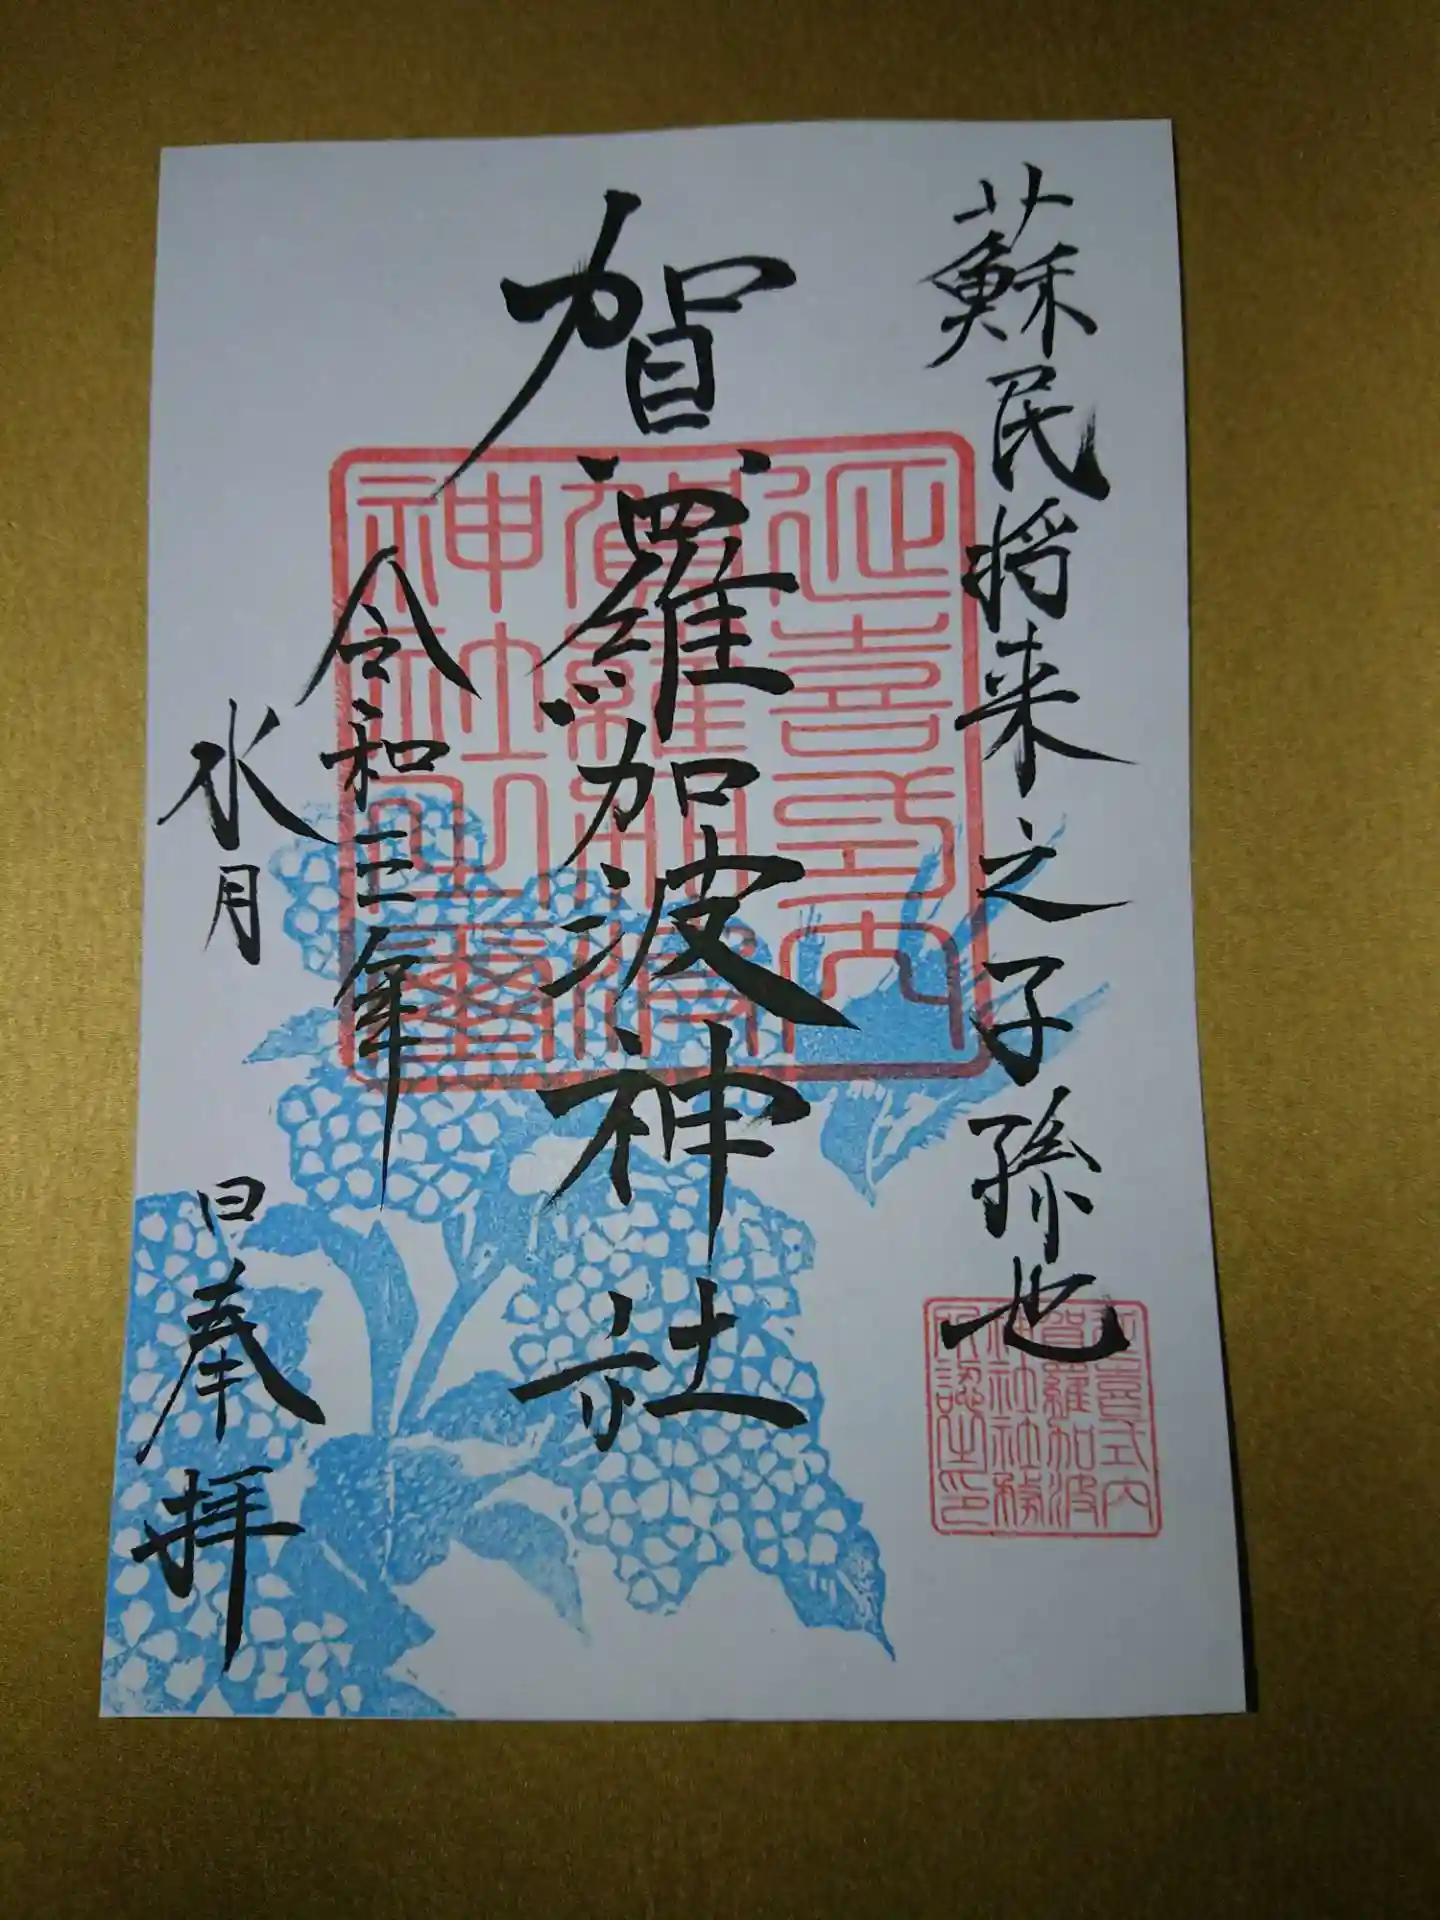 蘇民将来之子孫也
賀羅加波神社
令和三年
水月
日奉拝
延喜式内
賀羅加波
神社之璽
延喜式内
賀羅加波
神社社務
所認之印